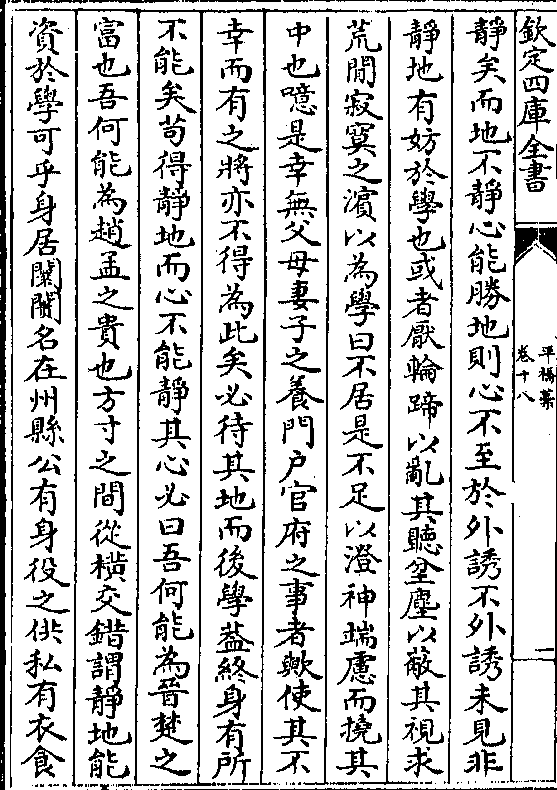 欽定四庫全書
平橋藁
卷十八
二
靜矣而地不靜心能勝地則心不至於外誘不外誘未見非
靜地有妨於學也或者厭輪蹄以亂其聽坌塵以蔽其視求
荒閒寂寞之濵以為學曰不居是不足以澄神端慮而撓其
中也噫是幸無父母妻子之養門户官府之事者歟使其不
幸而有之將亦不得為此矣必待其地而後學葢終身有所
不能矣苟得靜地而心不能靜其心必曰吾何能為晉楚之
富也吾何能為趙孟之貴也方寸之間從横交錯謂靜地能
資於學可乎身居闤闠名在州縣公有身役之供私有衣食